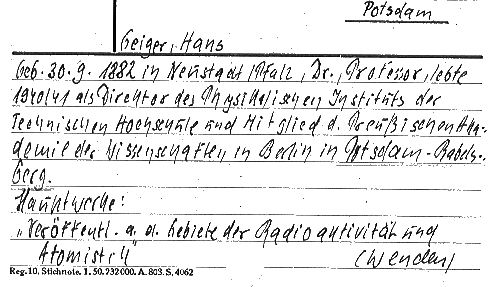 Potsdam
Geiger, Hans
Geb. 30. 9. 1882 in Neustadt/Pfalz, Dr., Professor, lebte
1940/41 als Direktor des Physikalischen Instituts der
Technischen Hochschule und Mitglied d. Preußischen Aka-
demie der Wissenschaften in Berlin in Potsdam-Babels-
berg.
Hauptwerke:
"Veröffentl. a. d. Gebiete der Radioaktivität und
Atomistik"
(Wenden)
Reg. 10. Stichnote. 1. 50. 732000. A. 803. S. 4062